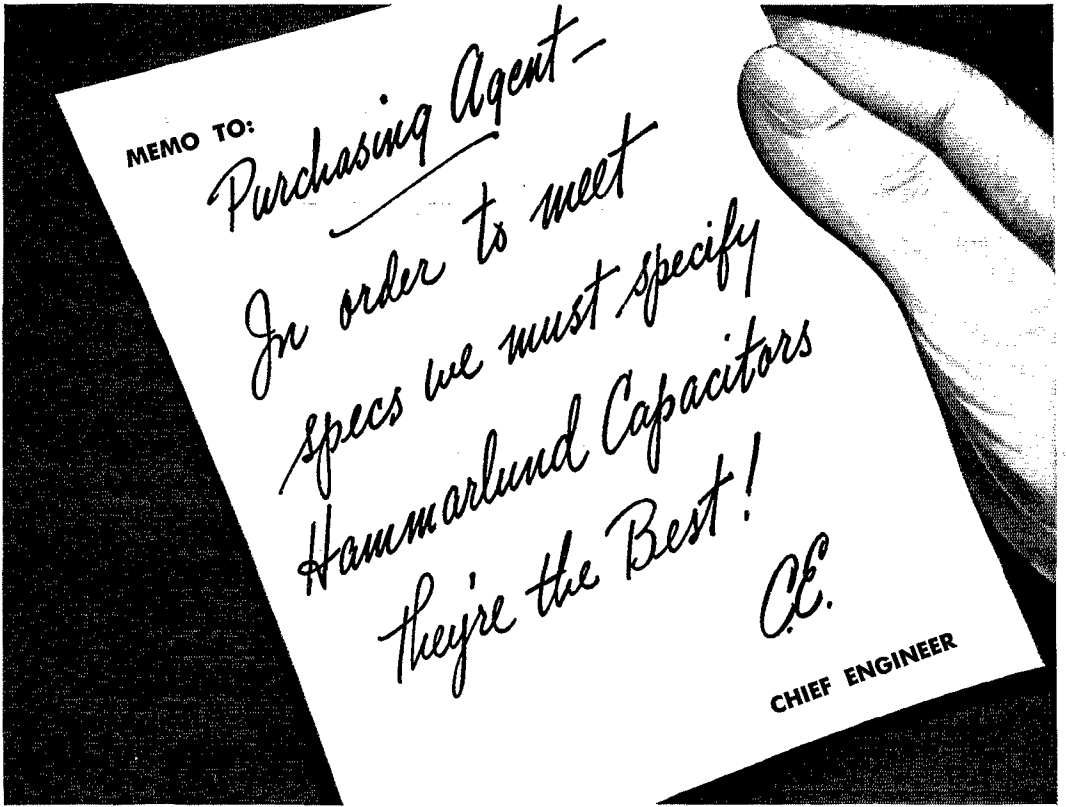 MEMO TO:
Purchasing Agent-
In order to meet
specs we must specify
Hammarlund Capacitors
they're the Best!
C.E.
CHIEF ENGINEER